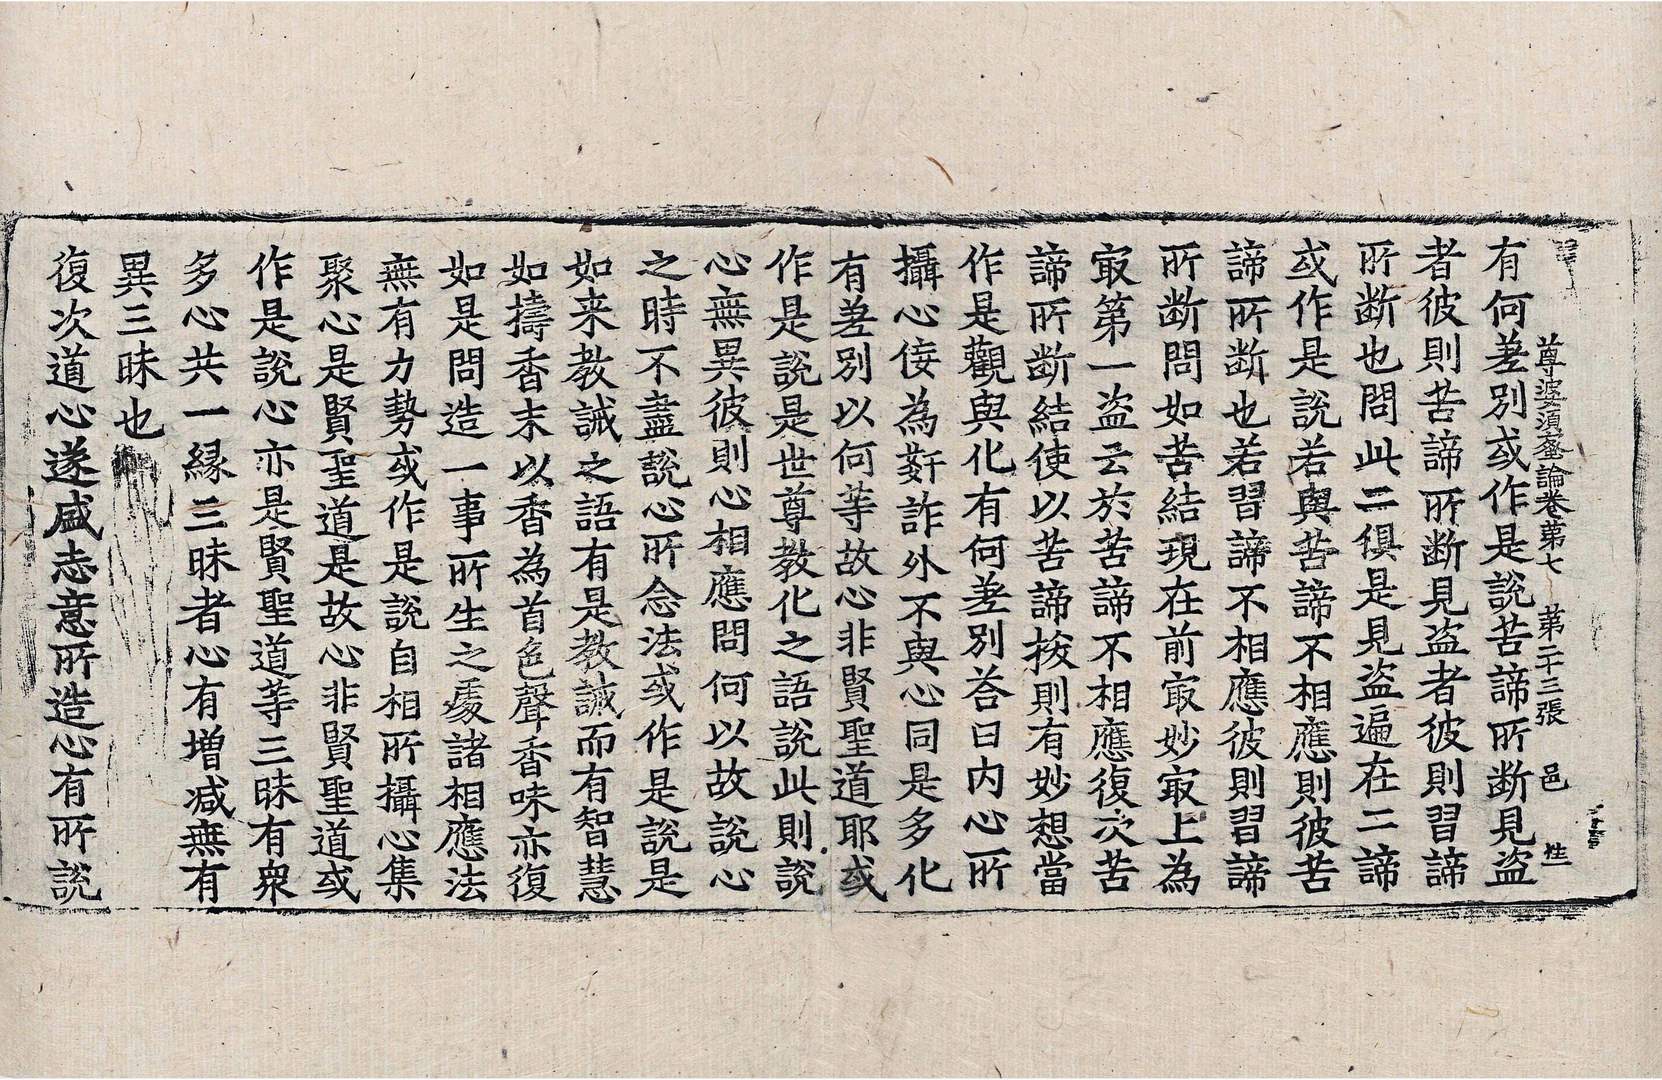 尊婆須蜜論卷第七 第二十三張 邑 性
有何差別或作是說苦諦所断見盜
者彼則苦諦所断見盜者彼則習諦
所断也問此二俱是見盜遍在二諦
或作是說若與苦諦不相應則彼苦
諦所断也若習諦不相應彼則習諦
所断問如苦結現在前㝡妙㝡上為
㝡第一盜云於苦諦不相應復次苦
諦所断結使以苦諦拔則有妙想當
作是觀與化有何差別荅曰內心所
攝心倿為姧詐外不與心同是多化
有差別以何等故心非賢聖道耶或
作是說是世尊教化之語說此則說
心無異彼則心相應問何以故說心
之時不盡說心所念法或作是說是
如来教誡之語有是教誡而有智慧
如擣香末以香為首色聲香味亦復
如是問造一事所生之處諸相應法
無有力勢或作是說自相所攝心集
聚心是賢聖道是故心非賢聖道或
作是說心亦是賢聖道等三昧有衆
多心共一緣三昧者心有增减無有
異三昧也
復次道心遂盛志意所造心有所說